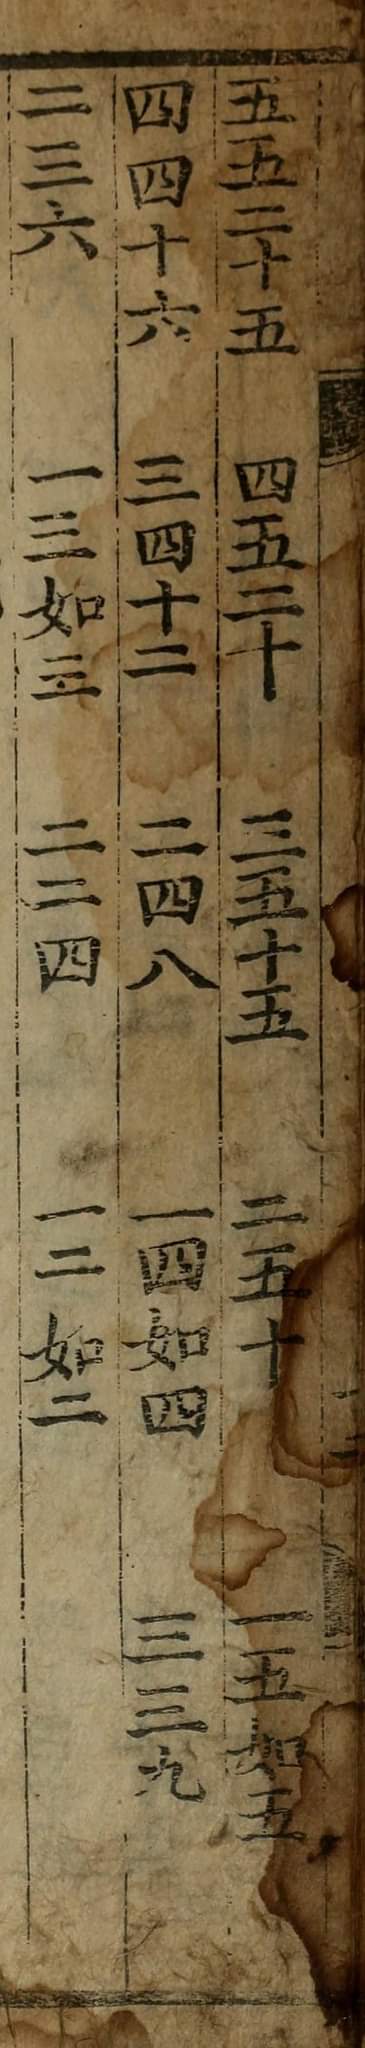 五五二十五 四五二十 三五十五 二五十 一五如五
四四十六 三四十二 二四八 一四如四 三三九
二三六 一三如三 二二四 一二如二